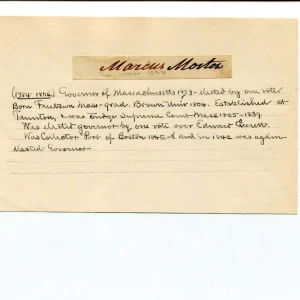 Marcus Morton
(1784-1864) Governor of Massachusetts elected by one vote
Born Mass-grad. Brown Univ 1804. Established at
Taunton, was Judge Supreme Court Mass 1825-1839.
Was elected governor by one vote over Edward
Was Collector Port of Boston 1845-8 and in 1842 was again
elected Governor